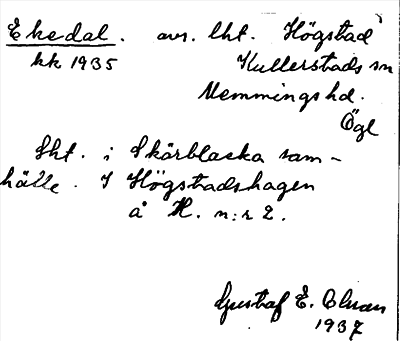 Ekedal. avs. lht. Högstad
kk 1935 Kullerstads sn
Memmings hd.
Ögl
Lht. i Skärblacka sam-
hälle. I Högstadshagen
å H. n:r 2.
Gustaf E. Olson
1937